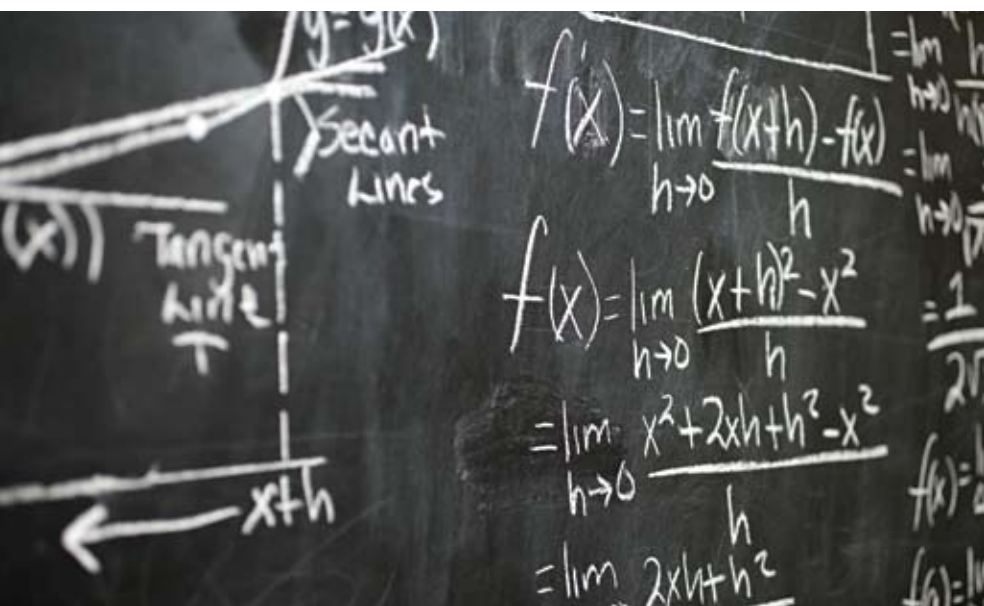 y=g(x)
Secant
Lines
(x))
Tangent
Line
T
x+h
f'(x)=lim f(x+h)-f(x)
h→0 h
f(x)=lim (x+h)²-x²
h→0 h
=lim x²+2xh+h²-x²
h→0 h
=lim 2xh+h²
=lim h
h→0
=lim
h→0
=1
2√
f(x)=